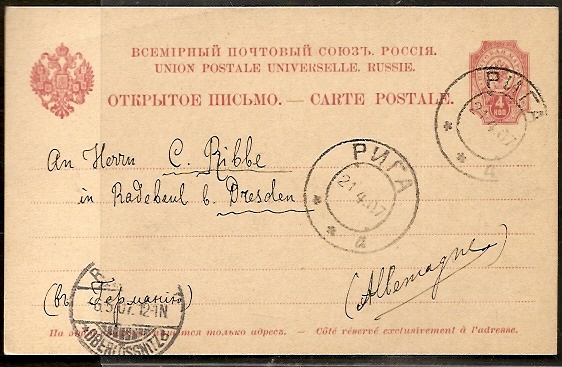 ВСЕМІРНЫЙ ПОЧТОВЫЙ СОЮЗЪ. РОССІЯ.
UNION POSTALE UNIVERSELLE. RUSSIE.
ОТКРЫТОЕ ПИСЬМО. — CARTE POSTALE.
4
КОП
РИГА
21.4.07
An Herrn C. Ribbe
in Radebeul b. Dresden
РИГА
21.4.07
(Allemagne)
(въ Германію)
6.5.07. 12-1N
OBERLÖSSNITZ
На только адресъ. — Côté réservé exclusivement à l'adresse.